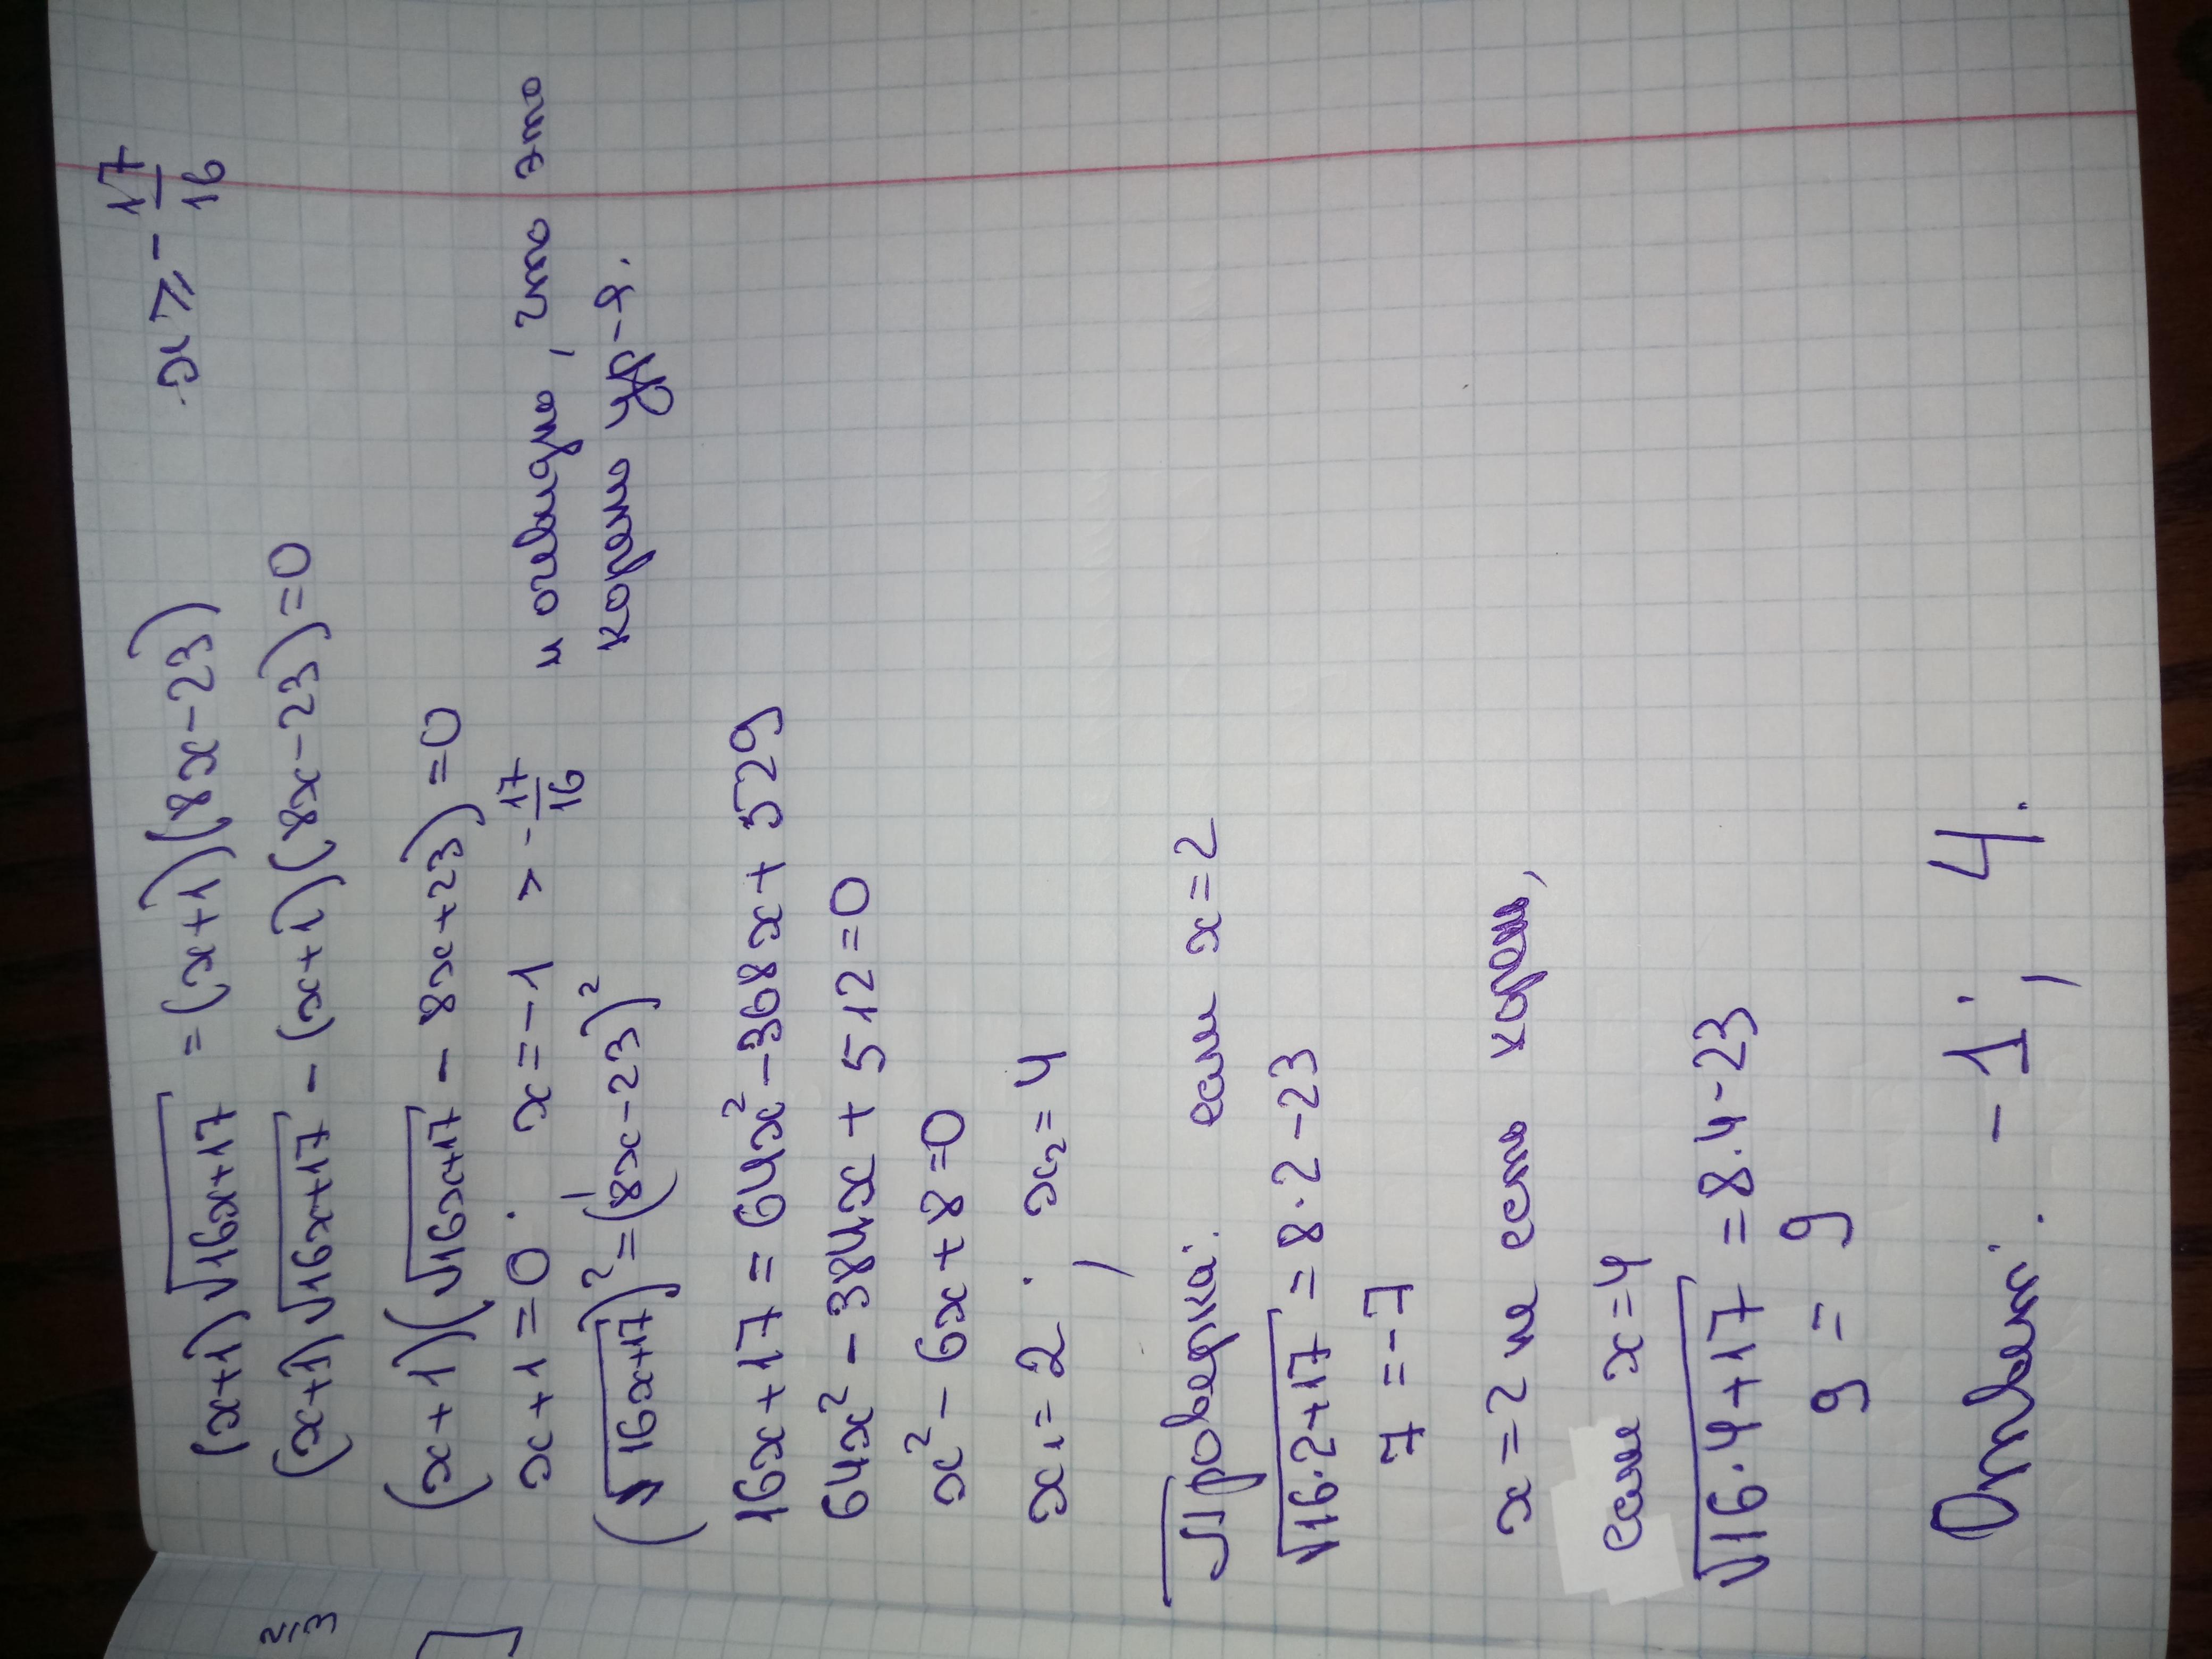 (x+1)√16x+17 = (x+1)(8x-23) x ≥ - 17/16
(x+1)√16x+17 - (x+1)(8x-23)=0
(x+1)(√16x+17 - 8x+23)=0
x+1=0. x=-1 > - 17/16 и очевидно, что это
корень ур-я.
(√16x+17)²=(8x-23)²
16x+17 = 64x²-368x+529
64x² - 384x + 512=0
x² - 6x+8=0
x₁=2; x₂=4
Проверка: если x=2
√16·2+17 = 8·2-23
7 = -7
x=2 не есть корень,
если x=4
√16·4+17 = 8·4-23
9 = 9
Ответ: -1; 4.
2/3